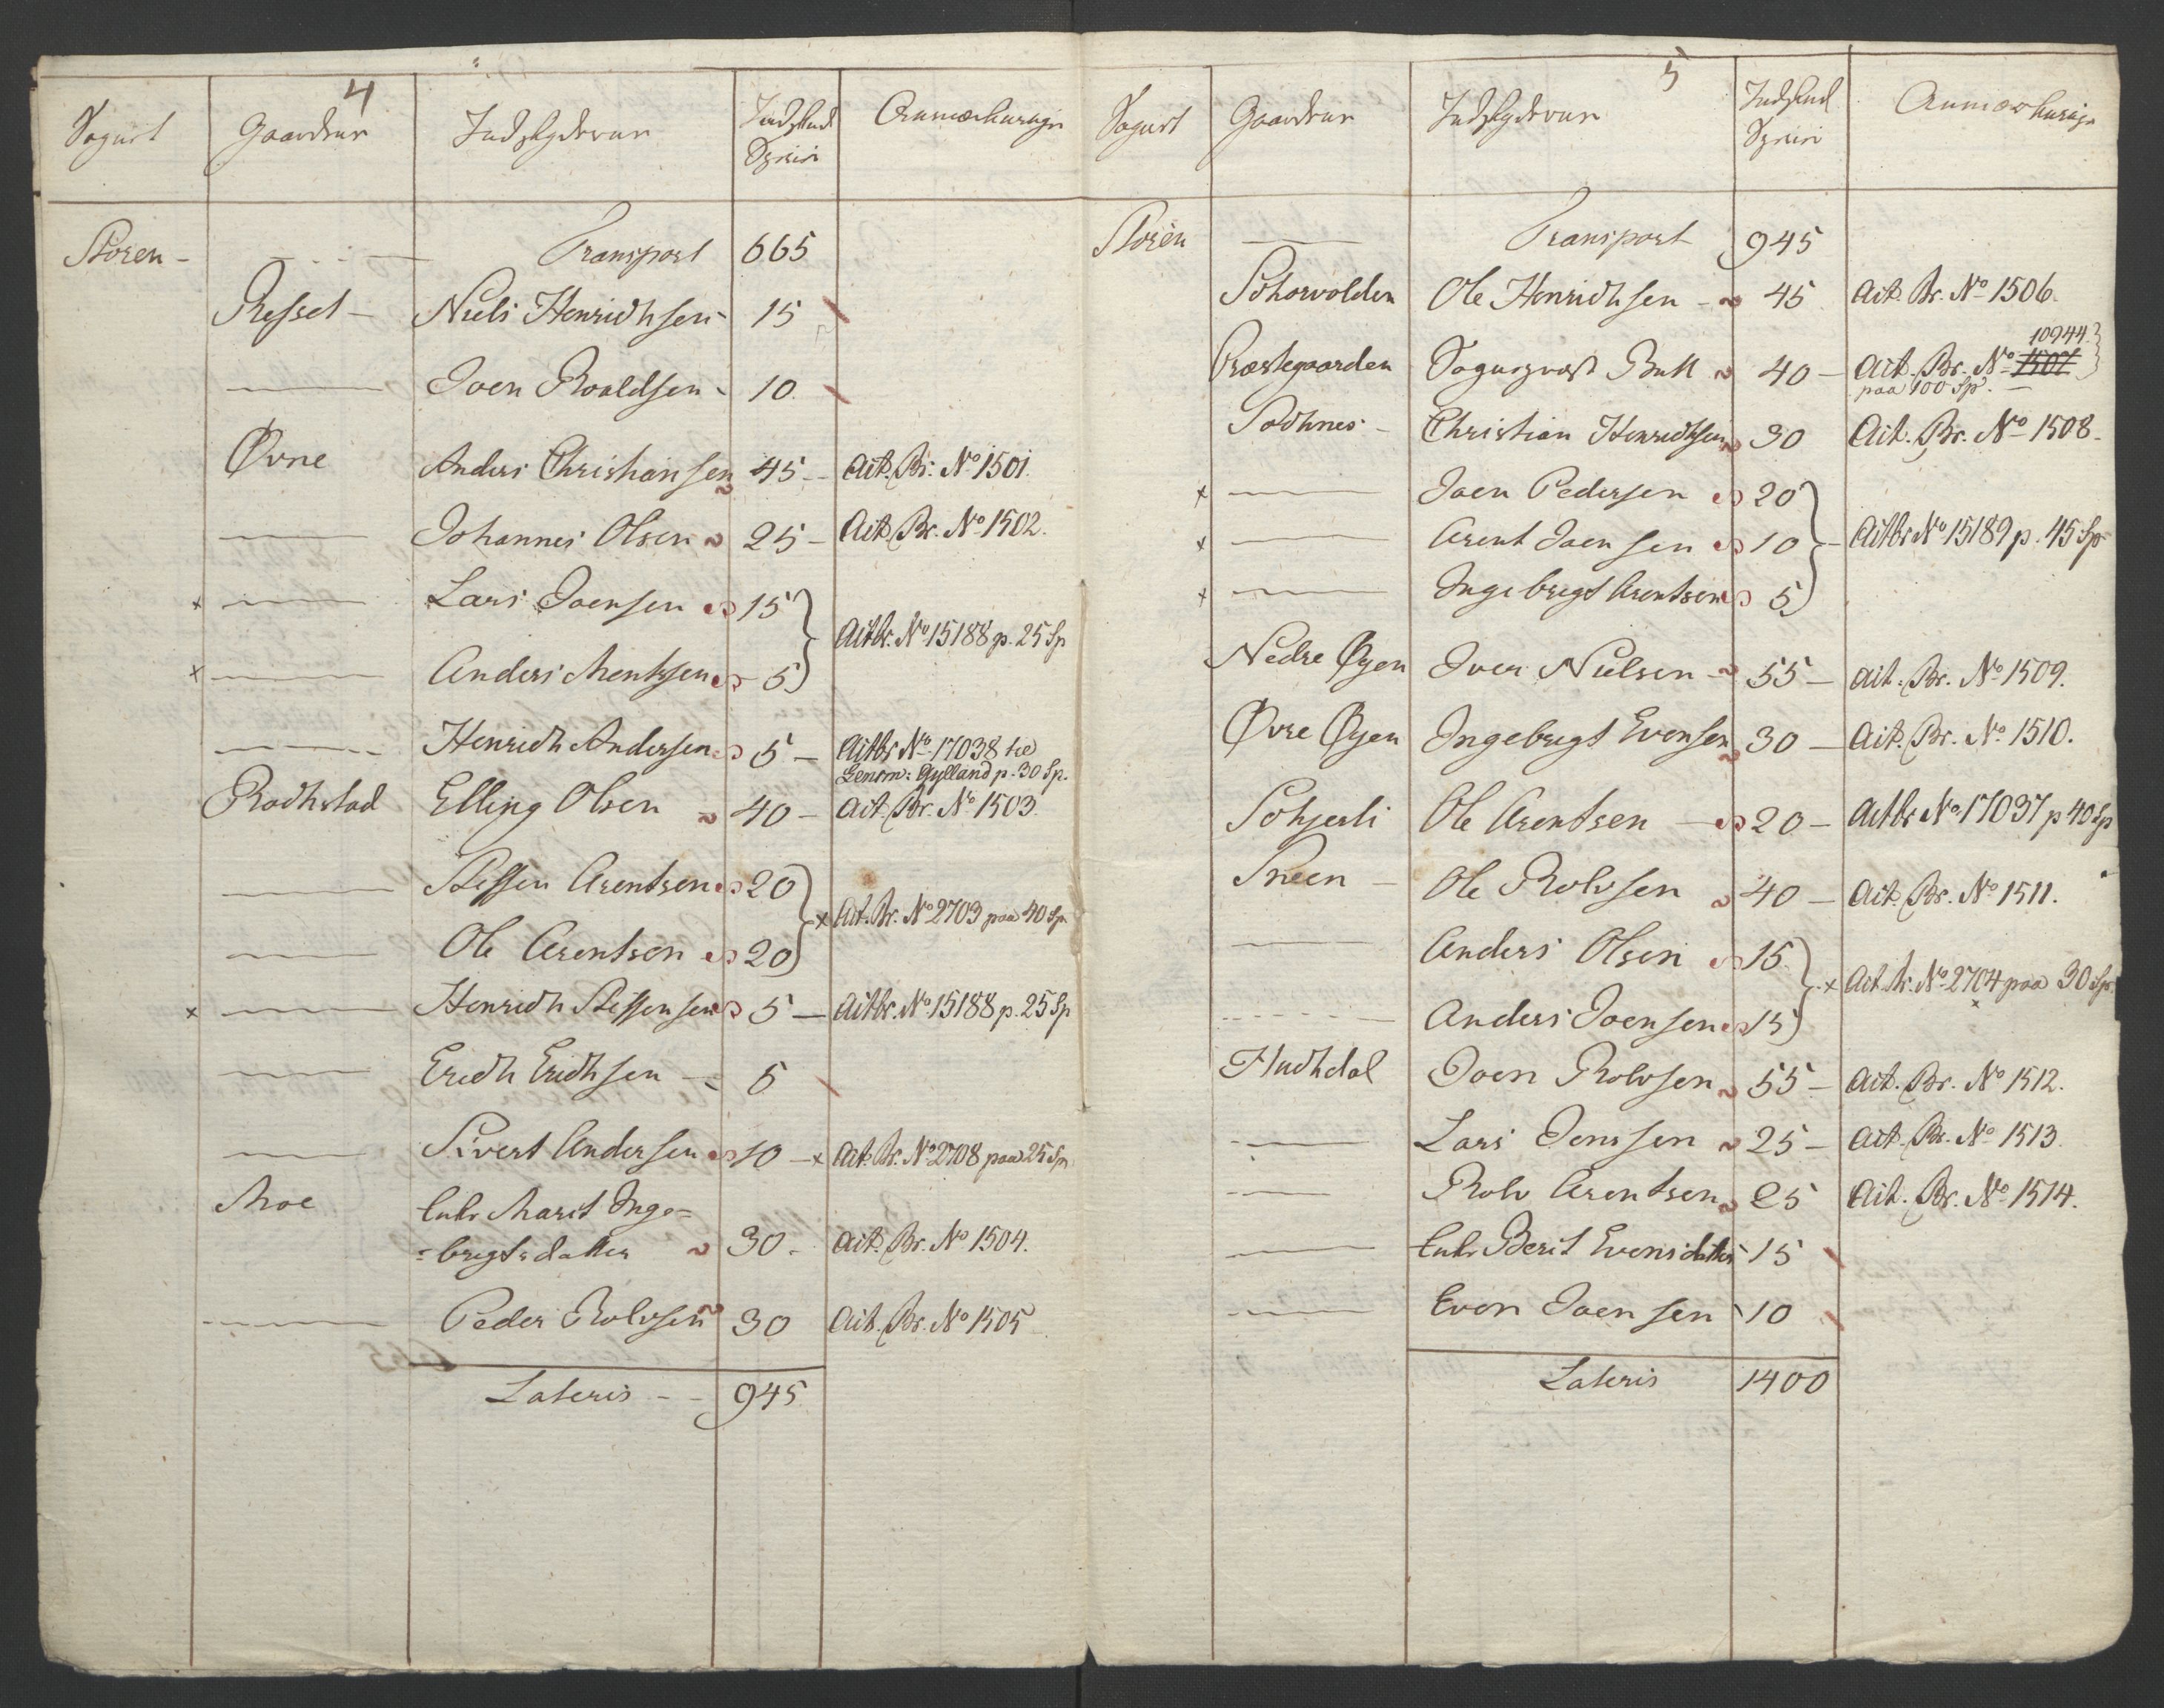 4
Sogn Gaardene Indskyderne Indskud Species Anmærkninger
Støren - Transport 665
Resset - Niels Henrichsen 15
— Joen Roaldsen 10.
Øvne Anders Christiansen 45 - Act. Br. No 1501.
— Johannes Olsen 25 - Act. Br. No 1502.
x — Lars Joensen 15
Actbr. No 15188 p. 25 Sp
x — Anders Mentzsen 5
— Henrich Andersen 5 - Actbr No 17038 til
Genom: Gylland p. 30 Sp.
Rochstad Elling Olsen 40 - Act. Br. No 1503.
— Steffen Arentsen 20
x Act. Br. No 2703 paa 40 Sp.
— Ole Arentsen 20
x — Henrich Steffensen 5 - Actbr. No 15188 p. 25 Sp
— Erich Erichsen 5
— Sivert Andersen 10 - x Act. Br. No 2708 paa 25 Sp
Moe Enke Marit Inge=
=brigtsdatter 30. Act. Br. No 1504.
— Peder Rolvsen 30 Act. Br. No 1505
Lateris - - 945
5
Sogn Gaardene Indskyderne Indskud Species Anmærkninger
Støren — Transport 945
Schorvolden Ole Henrichsen 45 Act. Br. No 1506.
10944.
Præstegaarden Sognepræst Bull 40 - Act. Br. No 1507
paa 100 Sp. —
Sochnes - Christian Henrichsen 30 Act. Br. No 1508.
x — Joen Pedersen 20
x — Arent Joensen 10 - Actbr No 15189 p. 45 Sp
x — Ingebrigt Arentsen 5
Nedre Øyen Iver Nielsen 55 - Act. Br. No 1509.
Øvre Øyen Ingebrigt Evensen 30 - Act. Br. No 1510.
Schjerli Ole Arentsen 20 - Actbr No 17037 p 40 Sp
Sneen - Ole Rolvsen 40 - Act. Br. No 1511.
— Anders Olsen 15
x Act. Br. No 2704 paa 30 Sp.
— Anders Joensen 15
Hudhdal Joen Rolvsen 55 - Act. Br. No 1512.
— Lars Jensen 25 - Act. Br. No 1513.
— Rolv Arentsen 25 Act. Br. No 1514.
— Enke Berit Evensdatter 15
— Even Joensen 10
Lateris 1400